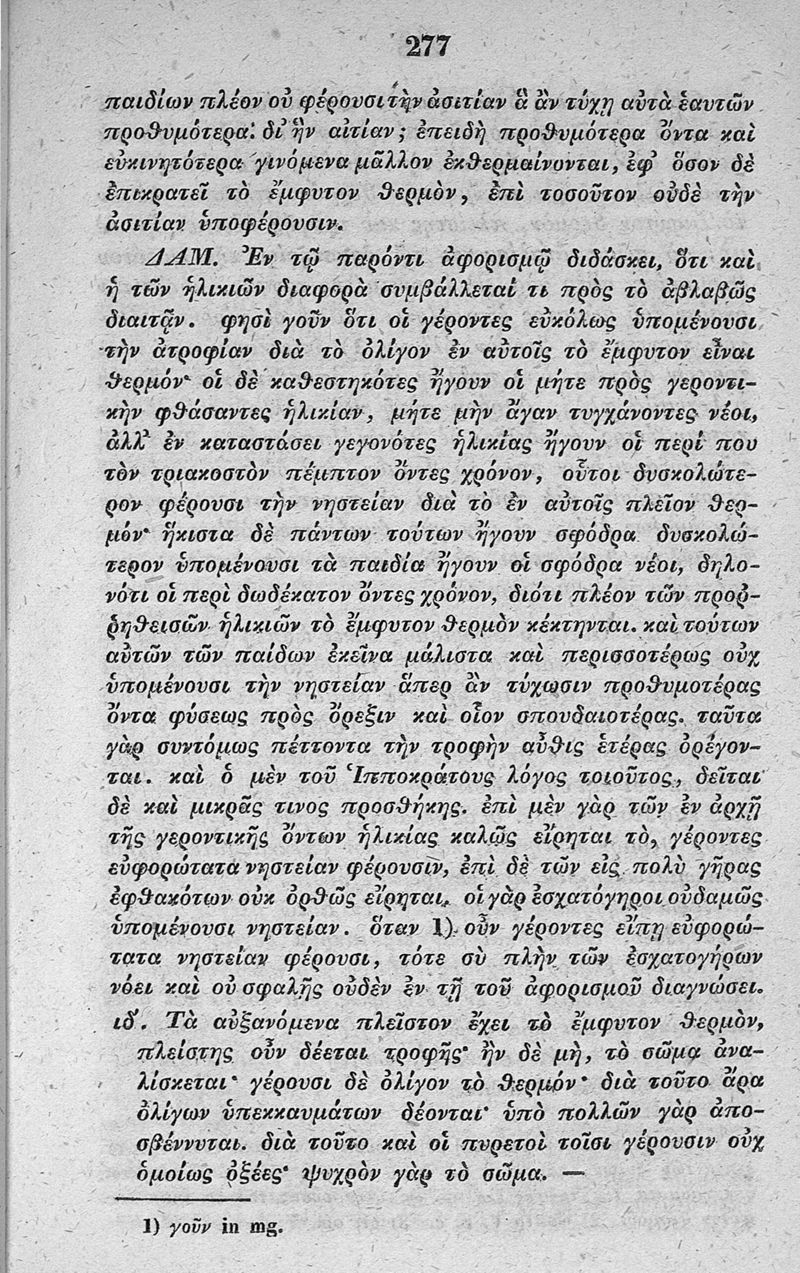 277
παιδίων πλέον οὐ φέρουσι τὴν ἀσιτίαν ἃ ἂν τύχῃ αὐτὰ ἑαυτῶν
προθυμότερα. δι᾽ ἣν αἰτίαν; ἐπειδὴ προθυμότερα ὄντα καὶ
εὐκινητότερα γινόμενα μᾶλλον ἐκθερμαίνονται, ἐφ᾽ ὅσον δὲ
ἐπικρατεῖ τὸ ἔμφυτον θερμὸν, ἐπὶ τοσοῦτον οὐδὲ τὴν
ἀσιτίαν ὑποφέρουσιν.
ΔΑΜ. Ἐν τῷ παρόντι ἀφορισμῷ διδάσκει, ὅτι καὶ
ἡ τῶν ἡλικιῶν διαφορὰ συμβάλλεταί τι πρὸς τὸ ἀβλαβῶς
διαιτᾷν. φησὶ γοῦν ὅτι οἱ γέροντες εὐκόλως ὑπομένουσι
τὴν ἀτροφίαν διὰ τὸ ὀλίγον ἐν αὐτοῖς τὸ ἔμφυτον εἶναι
θερμόν· οἱ δὲ καθεστηκότες ἤγουν οἱ μήτε πρὸς γεροντι-
κὴν φθάσαντες ἡλικίαν, μήτε μὴν ἄγαν τυγχάνοντες νέοι,
ἀλλ᾽ ἐν καταστάσει γεγονότες ἡλικίας ἤγουν οἱ περί που
τὸν τριακοστὸν πέμπτον ὄντες χρόνον, οὗτοι δυσκολώτε-
ρον φέρουσι τὴν νηστείαν διὰ τὸ ἐν αὐτοῖς πλεῖον θερ-
μόν· ἥκιστα δὲ πάντων τούτων ἤγουν σφόδρα δυσκολώ-
τερον ὑπομένουσι τὰ παιδία ἤγουν οἱ σφόδρα νέοι, δηλο-
νότι οἱ περὶ δωδέκατον ὄντες χρόνον, διότι πλέον τῶν προῤ-
ῥηθεισῶν ἡλικιῶν τὸ ἔμφυτον θερμὸν κέκτηνται. καὶ τούτων
αὐτῶν τῶν παίδων ἐκεῖνα μάλιστα καὶ περισσοτέρως οὐχ
ὑπομένουσι τὴν νηστείαν ἅπερ ἂν τύχωσιν προθυμοτέρας
ὄντα φύσεως πρὸς ὄρεξιν καὶ οἷον σπουδαιοτέρας. ταῦτα
γὰρ συντόμως πέττοντα τὴν τροφὴν αὖθις ἑτέρας ὀρέγον-
ται. καὶ ὁ μὲν τοῦ Ἱπποκράτους λόγος τοιοῦτος, δεῖται
δὲ καὶ μικρᾶς τινος προσθήκης. ἐπὶ μὲν γὰρ τῶν ἐν ἀρχῇ
τῆς γεροντικῆς ὄντων ἡλικίας καλῶς εἴρηται τὸ, γέροντες
εὐφορώτατα νηστείαν φέρουσιν, ἐπὶ δὲ τῶν εἰς πολὺ γῆρας
ἐφθακότων οὐκ ὀρθῶς εἴρηται. οἱ γὰρ ἐσχατόγηροι οὐδαμῶς
ὑπομένουσι νηστείαν. ὅταν 1) οὖν γέροντες εἴπῃ εὐφορώ-
τατα νηστείαν φέρουσι, τότε σὺ πλὴν τῶν ἐσχατογήρων
νόει καὶ οὐ σφαλῇς οὐδὲν ἐν τῇ τοῦ ἀφορισμοῦ διαγνώσει.
ιδ´. Τὰ αὐξανόμενα πλεῖστον ἔχει τὸ ἔμφυτον θερμὸν,
πλείστης οὖν δέεται τροφῆς· ἢν δὲ μὴ, τὸ σῶμα ἀνα-
λίσκεται· γέρουσι δὲ ὀλίγον τὸ θερμόν· διὰ τοῦτο ἄρα
ὀλίγων ὑπεκκαυμάτων δέονται· ὑπὸ πολλῶν γὰρ ἀπο-
σβέννυται. διὰ τοῦτο καὶ οἱ πυρετοὶ τοῖσι γέρουσιν οὐχ
ὁμοίως ὀξέες· ψυχρὸν γὰρ τὸ σῶμα. —
1) γοῦν in mg.